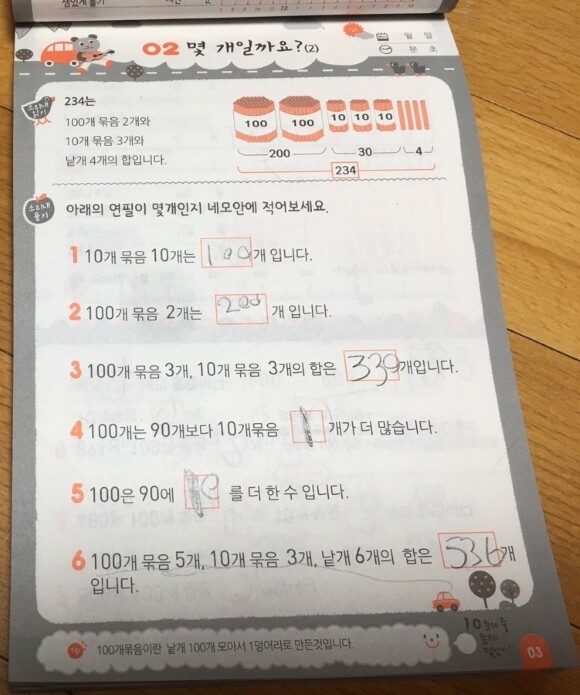 02 몇 개일까요?(2)
월 일
분 초
소리내
읽기
234는
100개 묶음 2개와
10개 묶음 3개와
낱개 4개의 합입니다.
100 100 10 10 10
200 30 4
234
소리내
풀기
아래의 연필이 몇개인지 네모안에 적어보세요.
1 10개 묶음 10개는 100 개 입니다.
2 100개 묶음 2개는 200 개 입니다.
3 100개 묶음 3개, 10개 묶음 3개의 합은 330 개입니다.
4 100개는 90개보다 10개묶음 1 개가 더 많습니다.
5 100은 90에 10 를 더 한 수 입니다.
6 100개 묶음 5개, 10개 묶음 3개, 낱개 6개의 합은 536 개
입니다.
Tip 100개묶음이란 낱개 100개 모아서 1덩어리로 만든것입니다.
10 문제 중
03